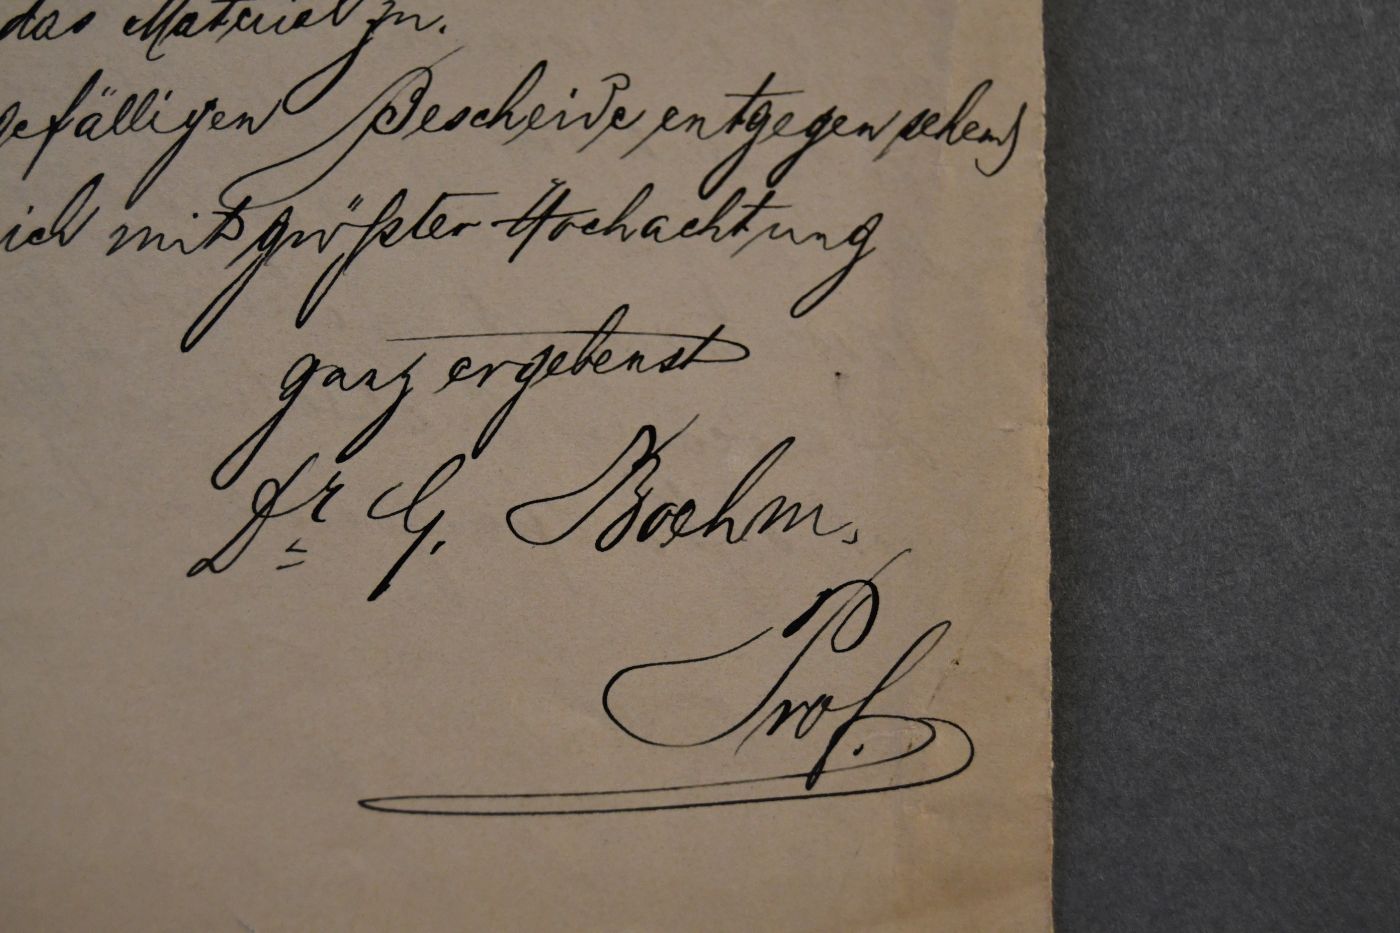 das Material zu.
gefälligen Bescheide entgegen sehend
ich mit größter Hochachtung
ganz ergebenst
Dr G. Boehm.
Prof.